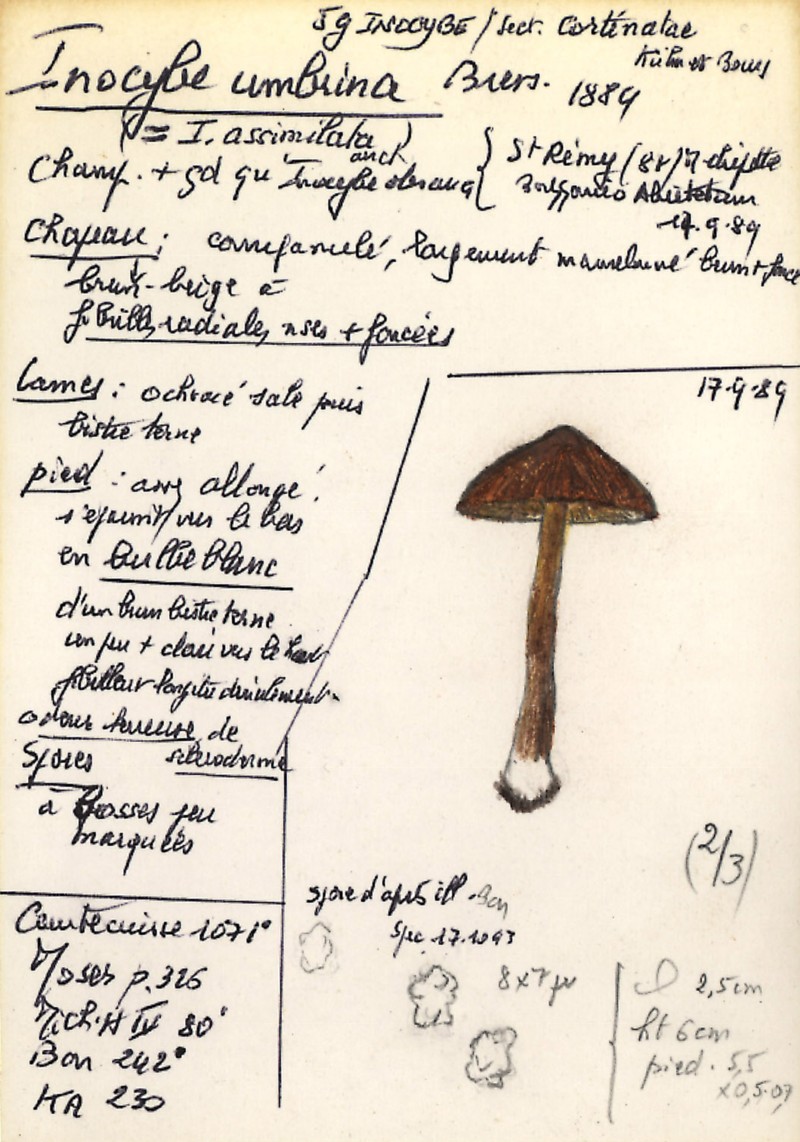 Sg INOCYBE / Sect. Corténatae
Kühn et Bours
Inocybe umbrina Bres. 1889
(= I. assimilata)
auct
Champ. + gd qu' Inocybe obscura
St Rémy (88)
Abietetum
17.9.89
Chapeau : campanulé, largement mamelonné brun + foncé
brun-beige à
fibrilles radiales + foncées
Lames : ochracé sale puis
bistre terne
pied : assez allongé
s'épanouit vers le bas
en bulbe blanc
d'un brun bistre terne
un peu + clair vers le haut
fibrilleux longitudinalement
odeur terreuse de
scléroderme
Spores
à bosses peu
marquées
17.9.89
(2/3)
Courtecuisse 1071°
Moser p. 326
Mich. H IV 80°
Bon 242°
KA 230
spore d'après ill. Bon
Spec 17.1093
8x7 µ
2,5 cm
ht 6 cm
pied . 5,5
x0,5-07